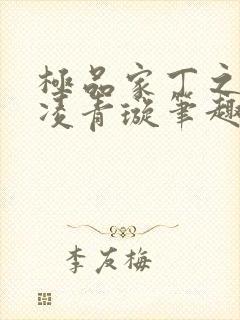 極品家丁之
凌青璇筆趣
李友梅